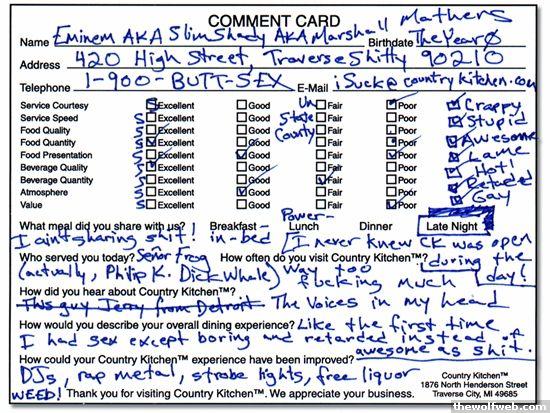 COMMENT CARD
Name Eminem AKA Slim Shady AKA Marshall Mathers Birthdate The Year 0
Address 420 High Street, Traverse Shitty 90210
Telephone 1-900-BUTT-SEX E-Mail iSuck@countrykitchen.com
Service Courtesy Excellent Good Un Fair Poor Crappy
Service Speed S Excellent Good State Fair Poor Stupid
Food Quality S Excellent Good County Fair Poor Awesome
Food Quantity S Excellent Good Fair Poor Lame
Food Presentation S Excellent Good Fair Poor Hot!
Beverage Quality S Excellent Good Fair Poor Retarded
Beverage Quantity S Excellent Good Fair Poor Gay
Atmosphere S Excellent Good Fair Poor
Value S Excellent Good Fair Poor
What meal did you share with us? Breakfast Power- Lunch Dinner Late Night
I ain't sharing shit! in-bed I never knew CK was open during the day!
Who served you today? Señor Frog How often do you visit Country Kitchen™?
(actually, Philip K. Dick Whale) Way too fucking much
How did you hear about Country Kitchen™?
This guy Jerry from Detroit The Voices in my head
How would you describe your overall dining experience? Like the first time
I had sex except boring and retarded instead of awesome as shit.
How could your Country Kitchen™ experience have been improved?
DJs, rap metal, strobe lights, free liquor
WEED! Thank you for visiting Country Kitchen™. We appreciate your business.
Country Kitchen™
1876 North Henderson Street
Traverse City, MI 49685
thewolfweb.com